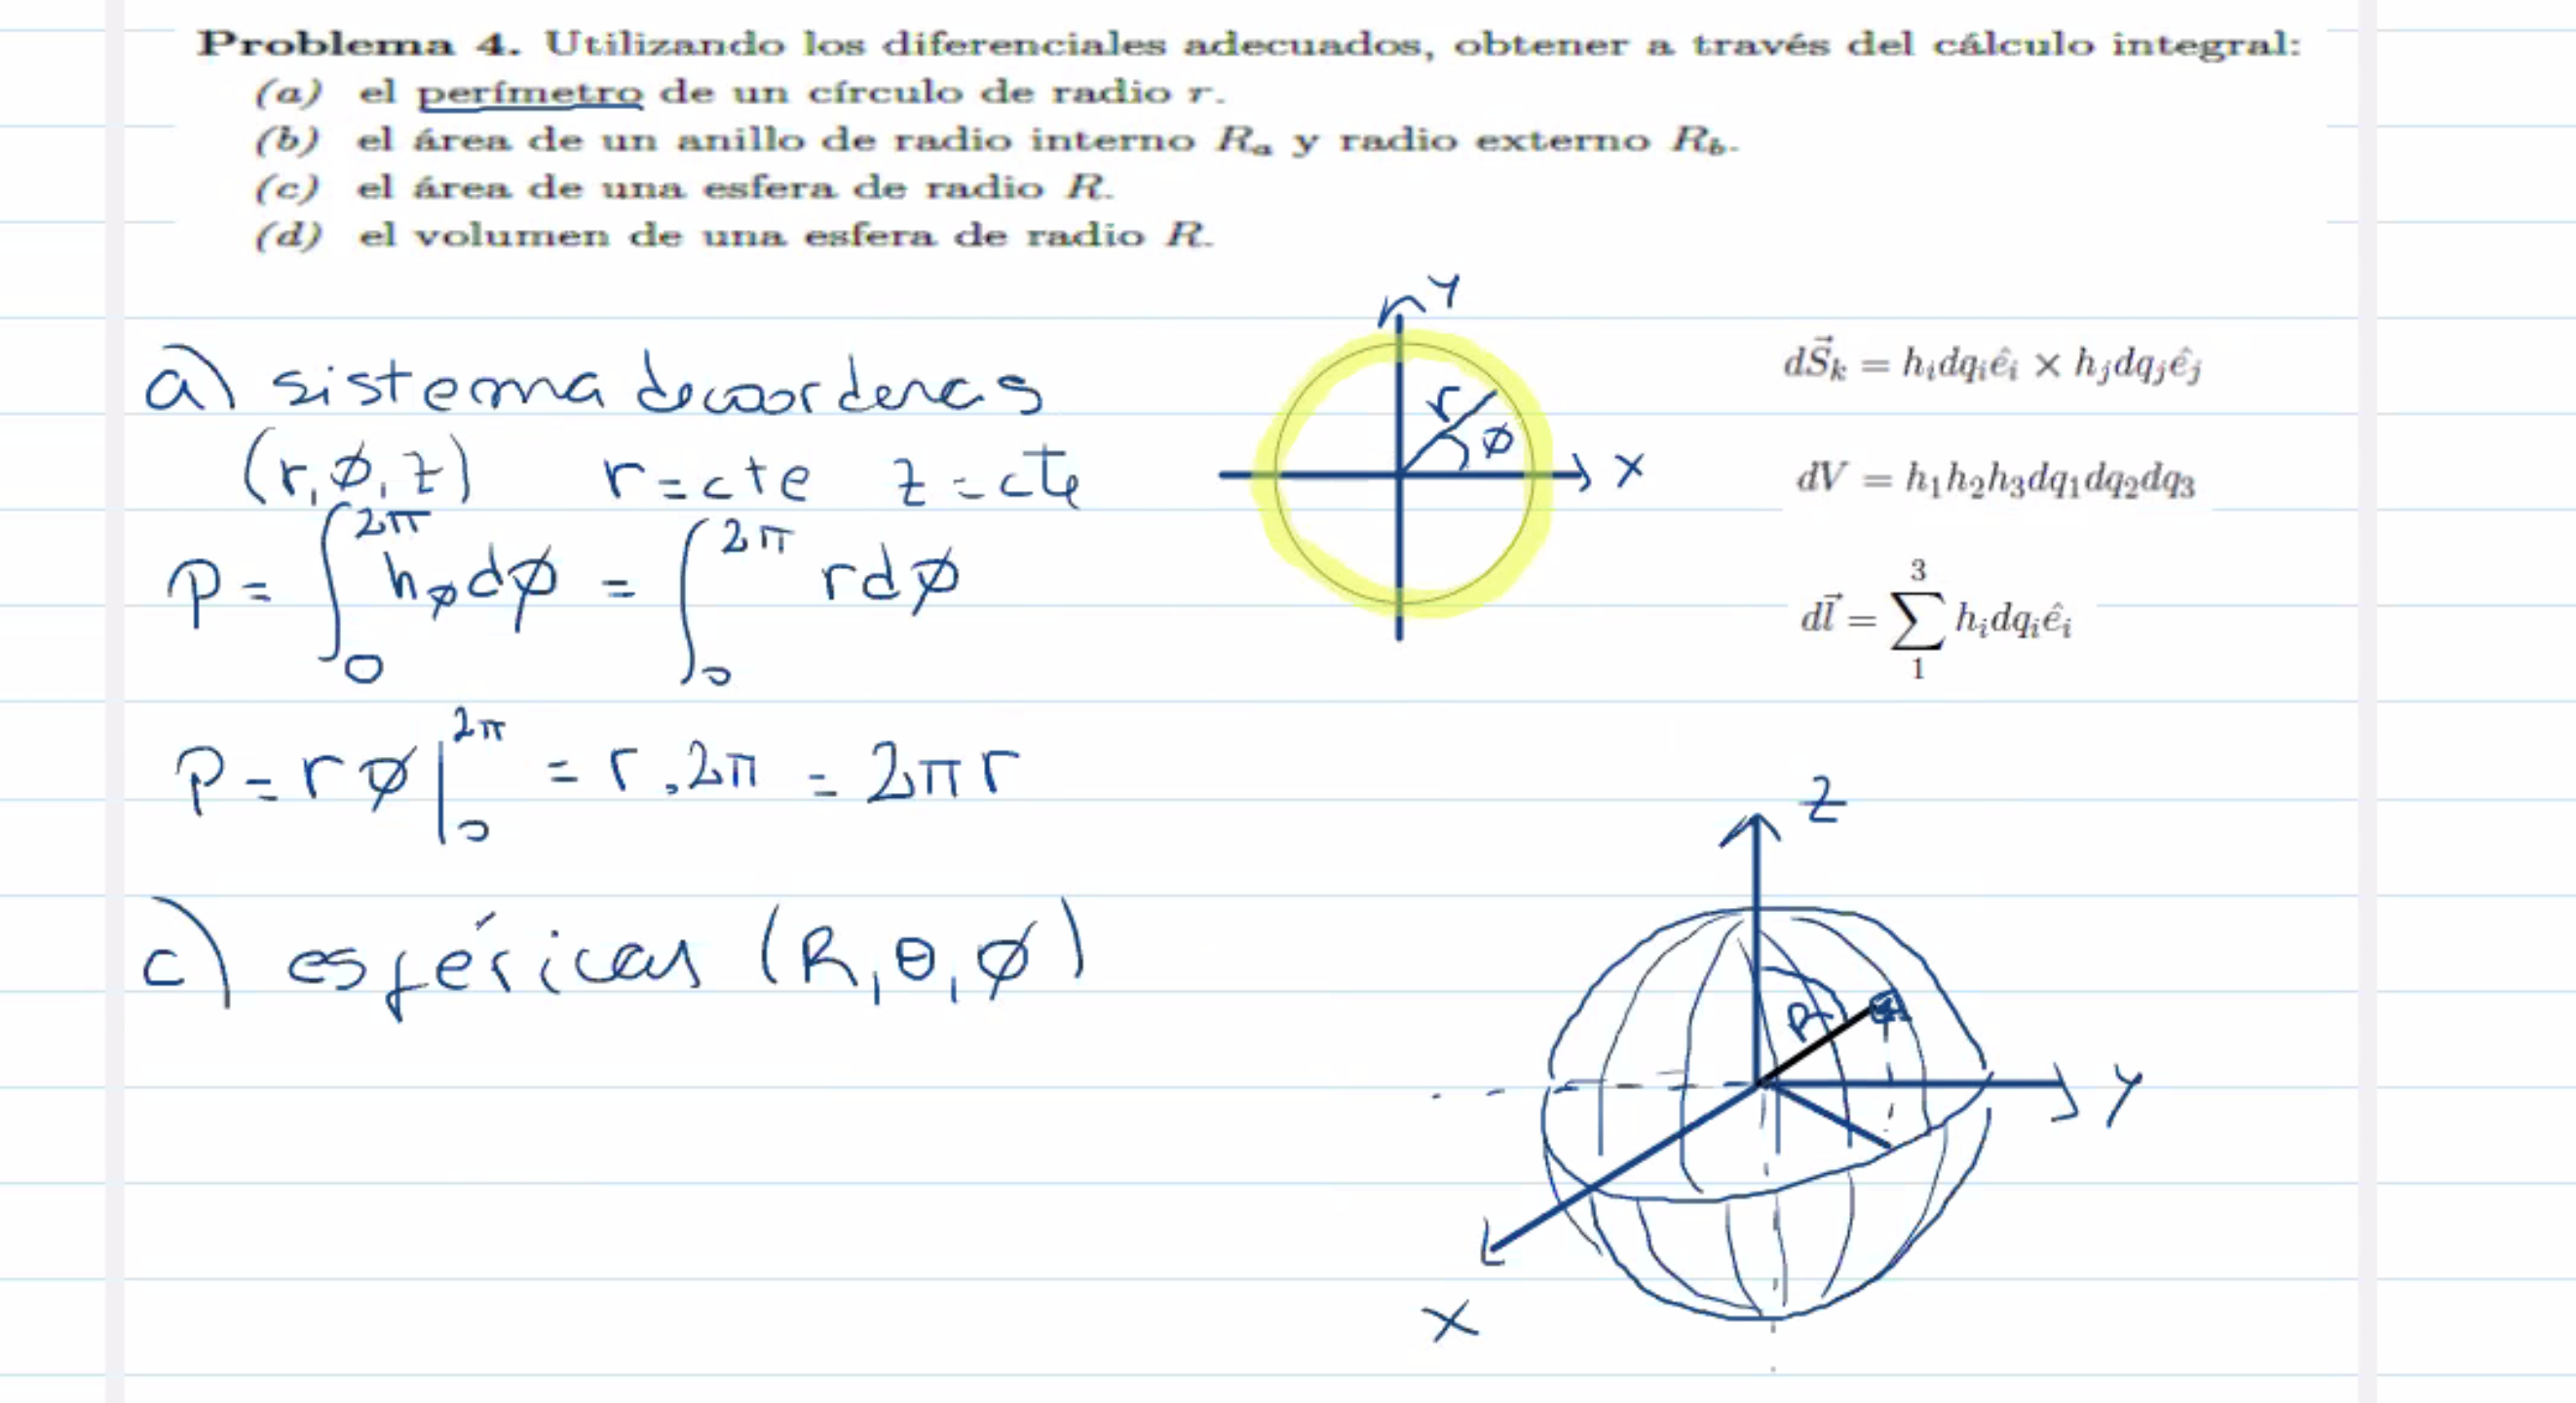 Problema 4. Utilizando los diferenciales adecuados, obtener a través del cálculo integral:
(a) el perímetro de un círculo de radio r.
(b) el área de un anillo de radio interno Rₐ y radio externo R_b.
(c) el área de una esfera de radio R.
(d) el volumen de una esfera de radio R.
a) sistema de coordenas
(r, φ, z) r = cte z = cte
P = ∫₀^{2π} h_φ dφ = ∫₀^{2π} r dφ
P = r φ |₀^{2π} = r . 2π = 2π r
Y
r
φ
X
dS⃗ₖ = hᵢdqᵢêᵢ × hⱼdqⱼêⱼ
dV = h₁h₂h₃dq₁dq₂dq₃
dl⃗ = ∑₁³ hᵢdqᵢêᵢ
c) esféricas (R, θ, φ)
Z
R
Y
X